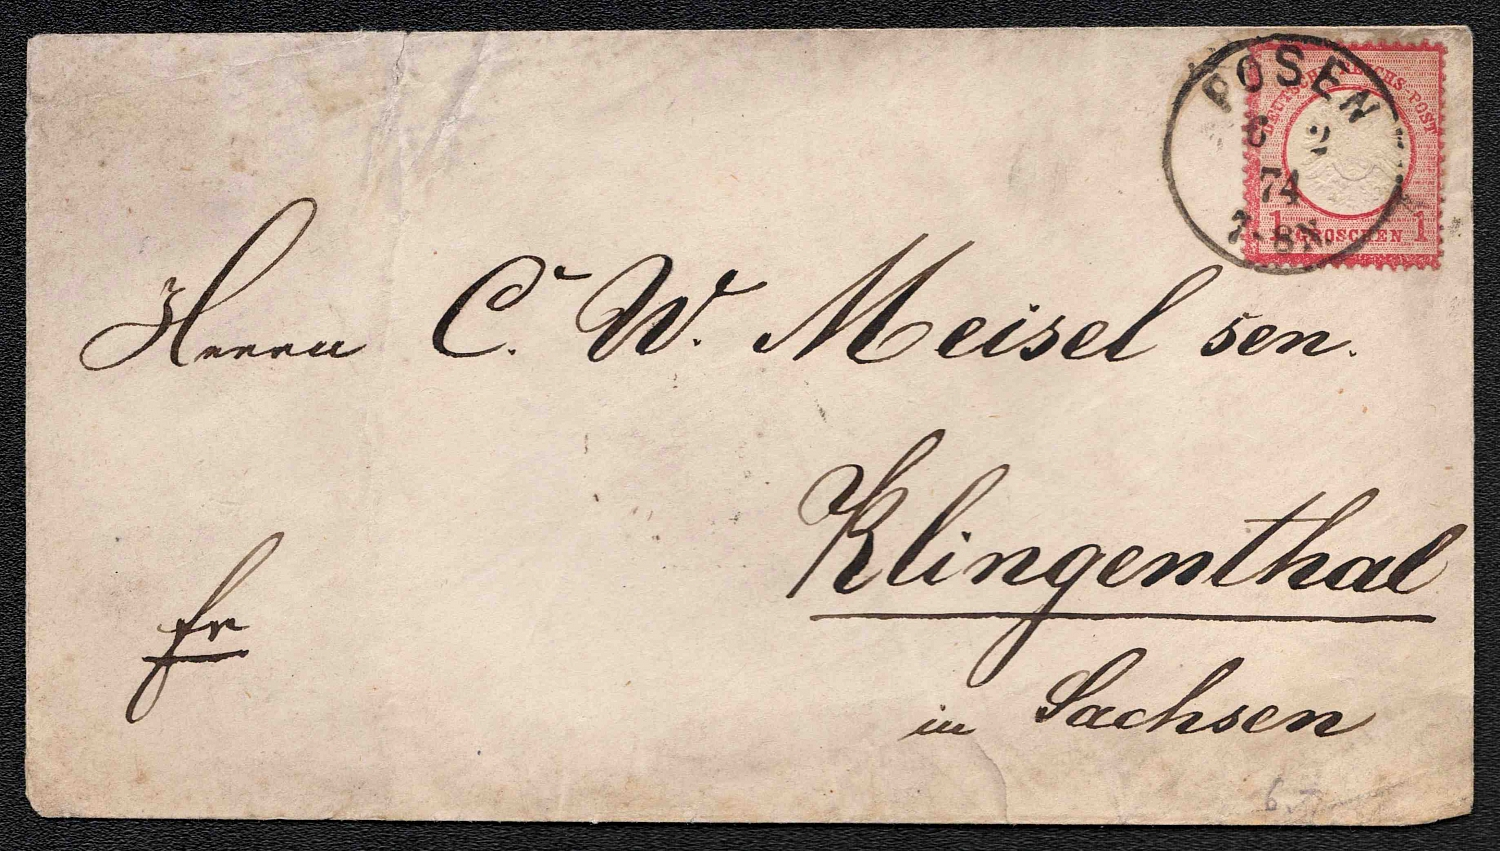 POSEN
6 2
74
7-8N.
DEUTSCHE REICHS-POST
1 GROSCHEN 1
Herrn C. W. Meisel sen.
Klingenthal
in Sachsen
fr